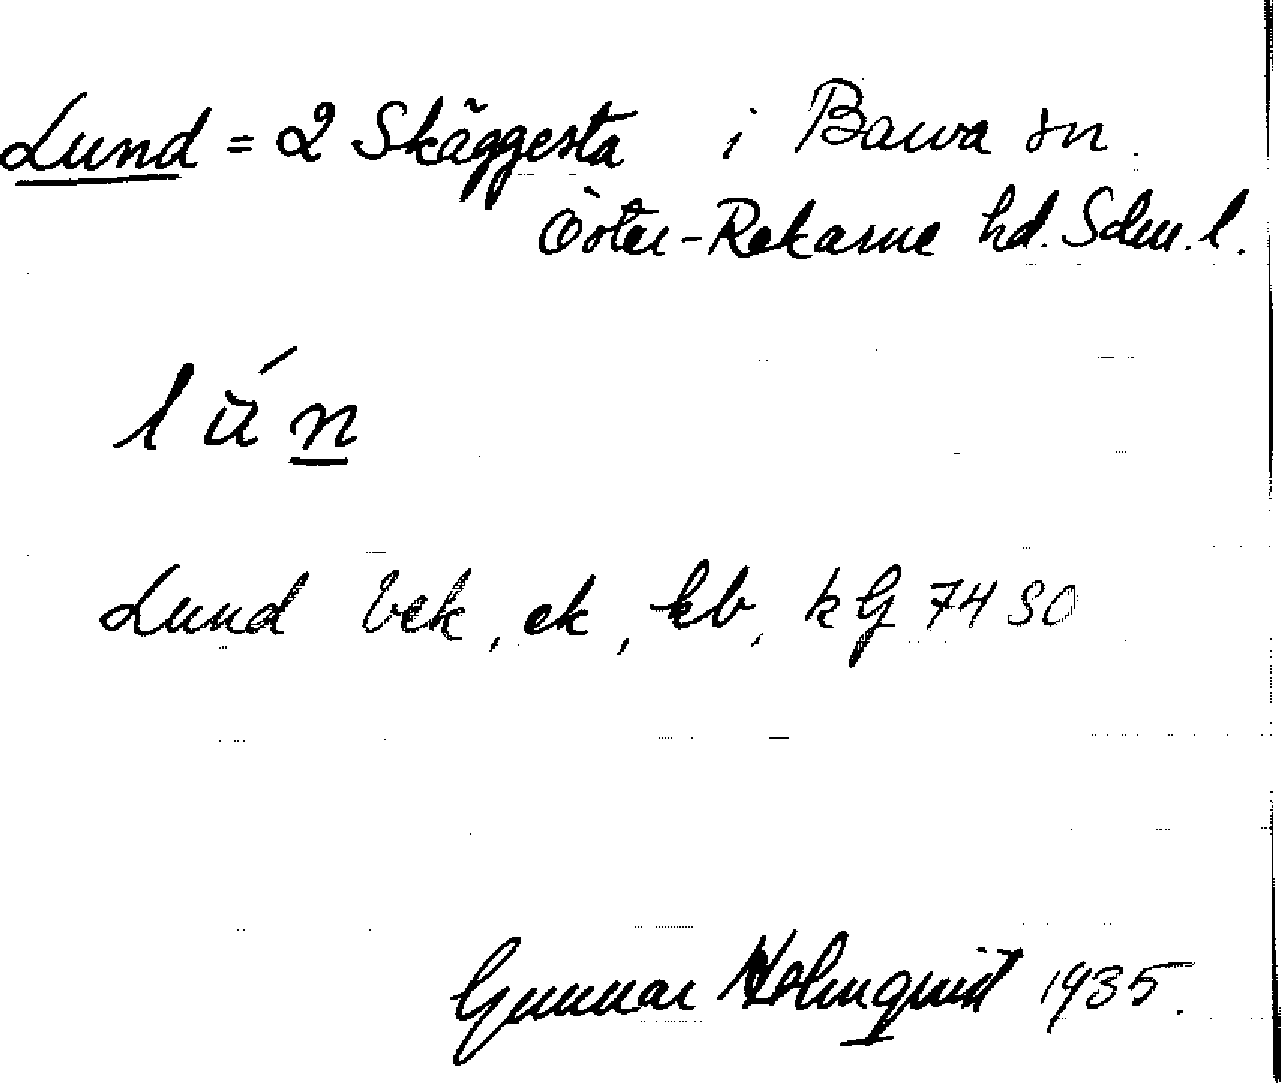 Lund = 2 Skäggesta i Barva sn.
Öster-Rekarne hd. Sdm. l.
lún
Lund bek, ek, kb, kG 74 SO
Gunnar Holmquist 1935.